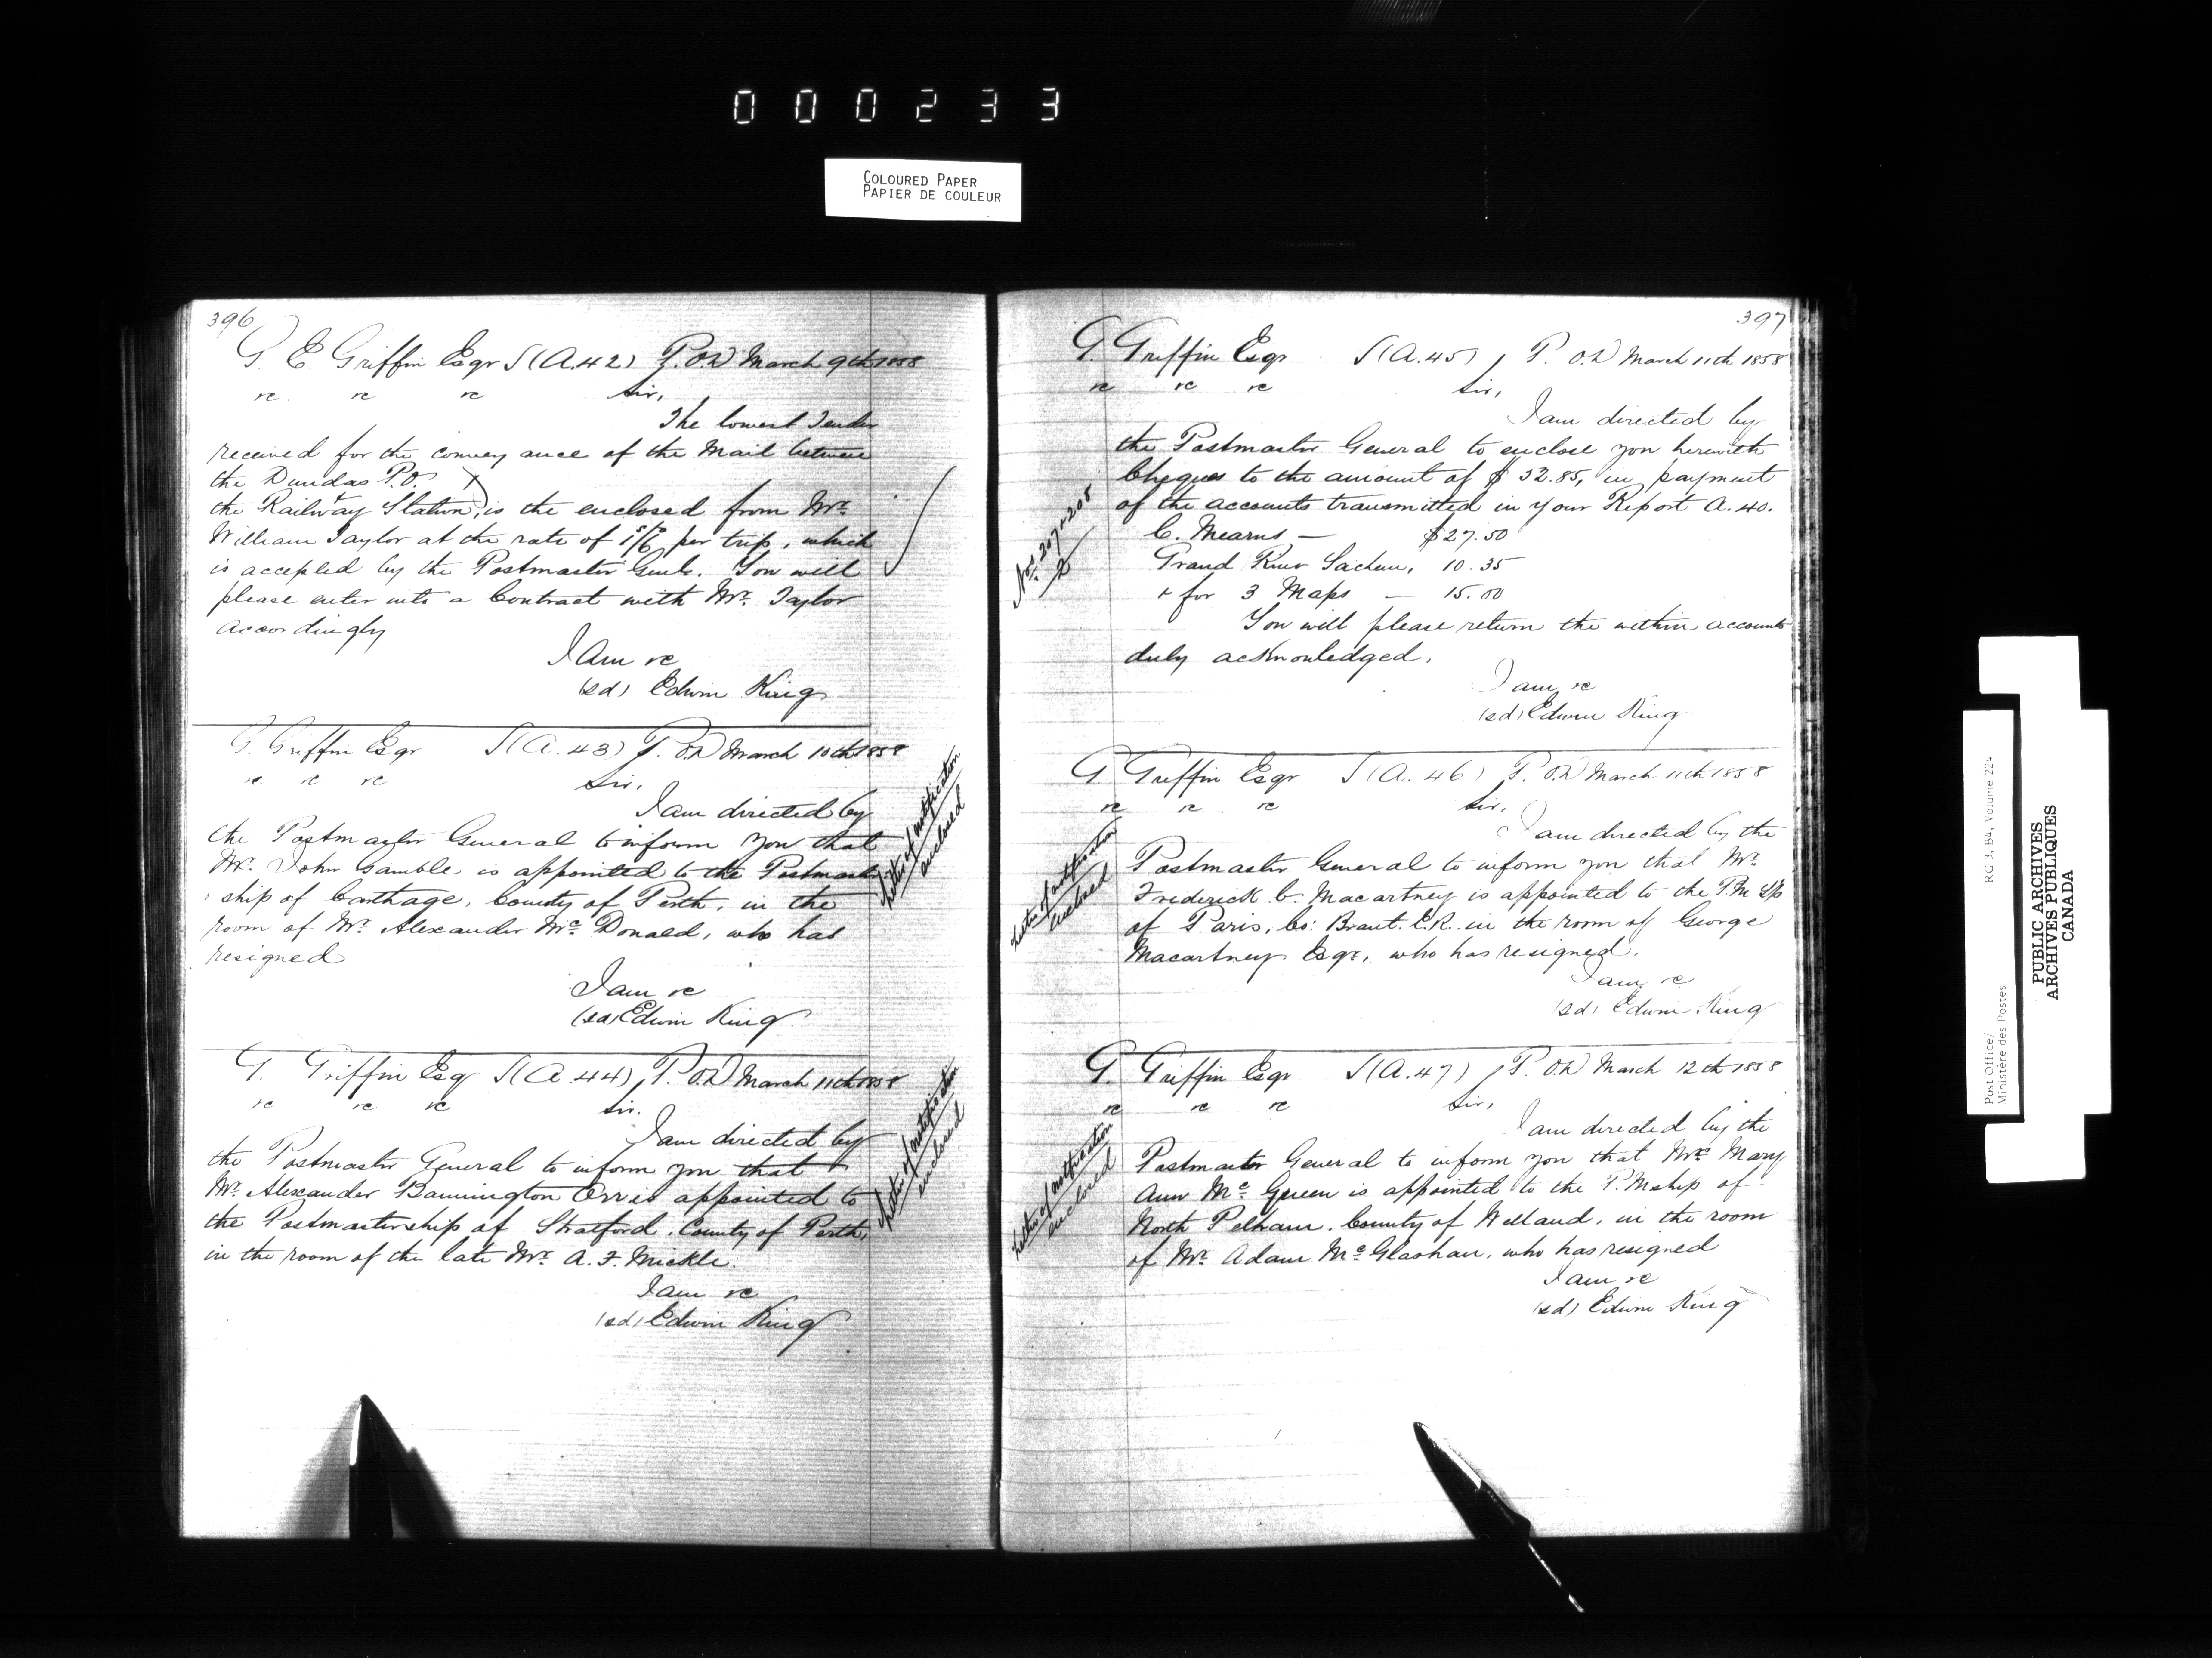 000233
COLOURED PAPER
PAPIER DE COULEUR
396
G. E. Griffin Esqr S(A.42) P.O.D March 9th 1858
&c &c &c Sir,
The lowest Tender
received for the conveyance of the Mail between
the Dundas P.O. &
the Railway Station, is the enclosed from Mr.
William Taylor at the rate of 1/6 per trip, which
is accepted by the Postmaster Genl. You will
please enter into a Contract with Mr. Taylor
accordingly
I Am &c
(sd) Edwin King
G. Griffin Esqr S(A.43) P.O.D March 10th 1858
&c &c &c Sir,
I am directed by
the Postmaster General to inform you that
Mr. John Gamble is appointed to the Postmaster
ship of Carthage, County of Perth, in the
room of Mr. Alexander Mc Donald, who has
resigned
I am &c
(sd) Edwin King
Letter of notification
enclosed
G. Griffin Esqr S(A.44) P.O.D March 11th 1858
&c &c &c Sir.
I am directed by
the Postmaster General to inform you that
Mr. Alexander Bannington Orr is appointed to
the Postmastership of Stratford, County of Perth,
in the room of the late Mr. A. F. Mickle.
I am &c
(sd) Edwin King
Letter of notification
enclosed
397
G. Griffin Esqr S(A.45) P.O.D March 11th 1858
&c &c &c Sir,
I am directed by
the Postmaster General to enclose you herewith
Cheques to the amount of $52.85, in payment
of the accounts transmitted in your Report A.40.
C. Mearns — $27.50
Grand River Sachem, 10.35
+ for 3 Maps — 15.00
You will please return the within accounts
duly acknowledged.
I am &c
(sd) Edwin King
Nos. 207 & 208
G. Griffin Esqr S(A.46) P.O.D March 11th 1858
&c &c &c Sir,
I am directed by the
Postmaster General to inform you that Mr.
Frederick C. Macartney is appointed to the P.M Sp
of Paris, Co: Brant. E.R. in the room of George
Macartney Esqr, who has resigned.
I am &c
(sd) Edwin King
Letter of notification
enclosed
G. Griffin Esqr S(A.47) P.O.D March 12th 1858
&c &c &c Sir,
I am directed by the
Postmaster General to inform you that Mrs. Mary
Ann Mc. Queen is appointed to the P.Mship of
North Pelham, County of Welland, in the room
of Mr. Adam McGlashan, who has resigned
I am &c
(sd) Edwin King
Letter of notification
enclosed
Post Office/
Ministère des Postes
RG 3, B4, Volume 224
PUBLIC ARCHIVES
ARCHIVES PUBLIQUES
CANADA